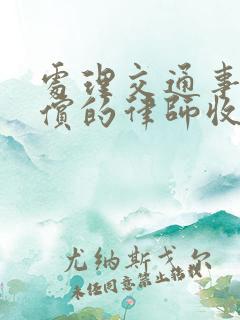 處理交通事
償的律師收
尤纳斯戈尔
未经同意禁止转载